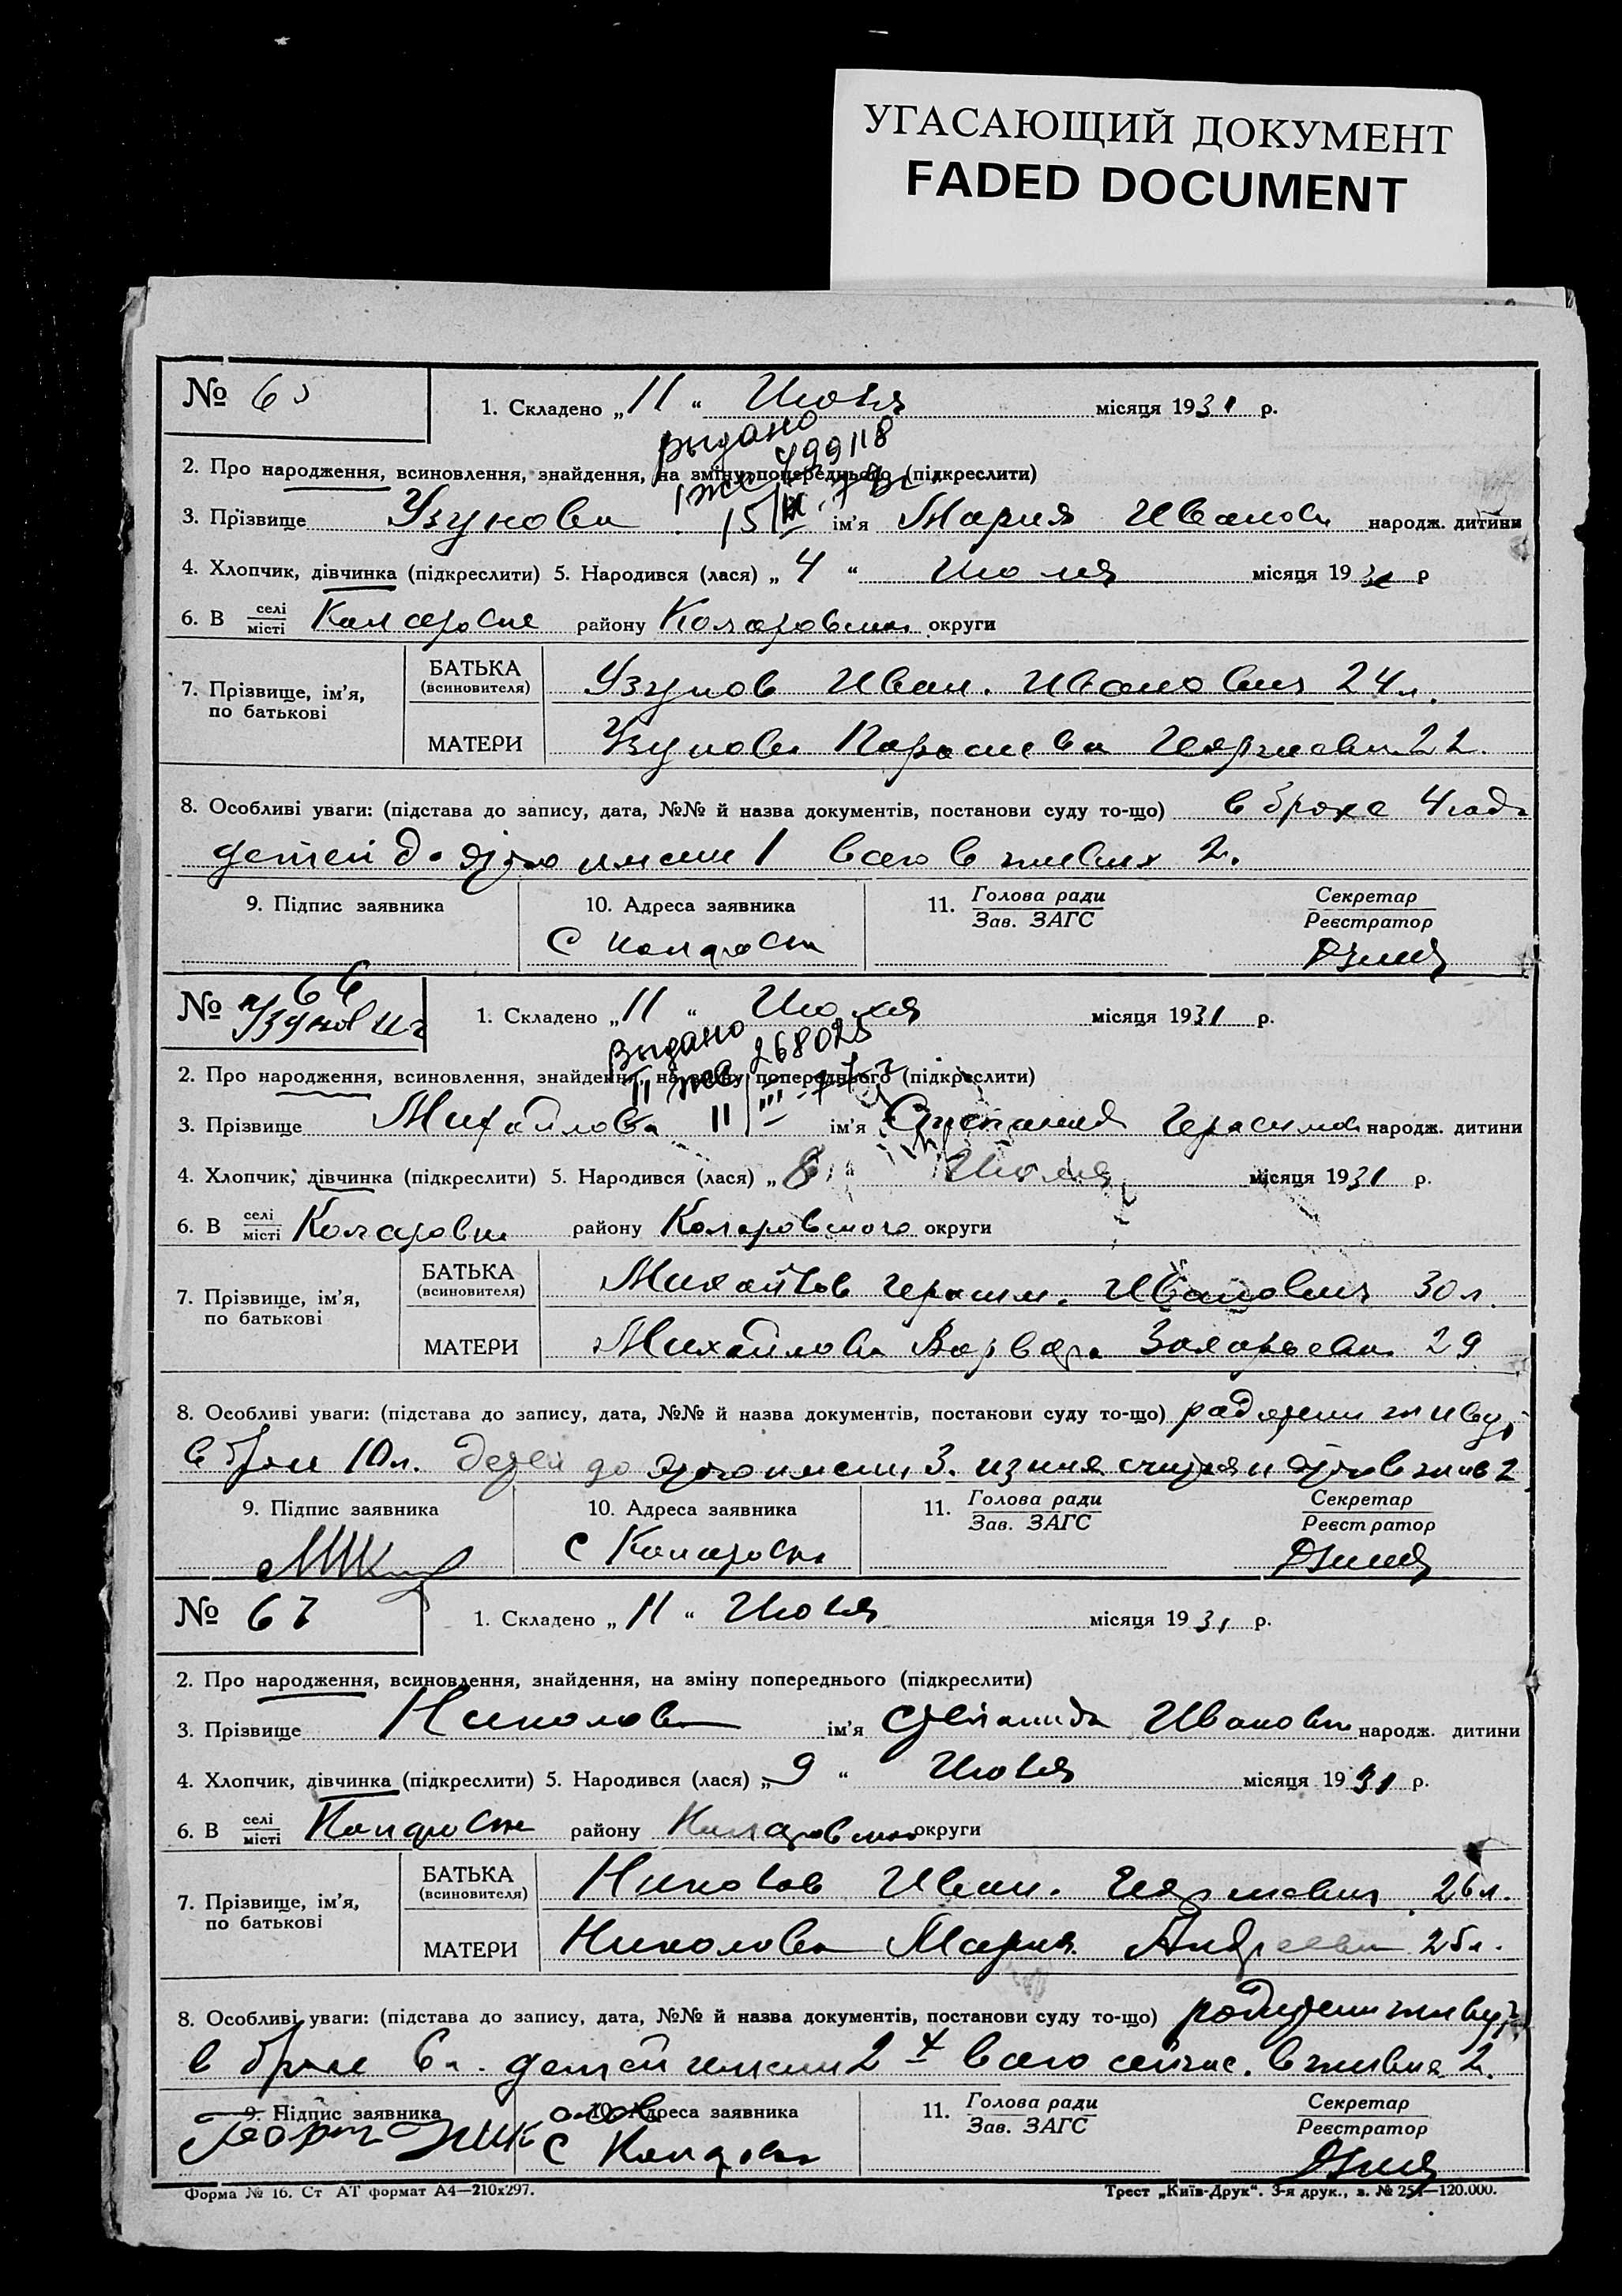 УГАСАЮЩИЙ ДОКУМЕНТ
FADED DOCUMENT
№ 65
1. Складено „ 11 “ Июля місяця 1931 р.
Выдано
499118
2. Про народження, всиновлення, знайдення, на зміну попереднього (підкреслити)
15/IX
3. Прізвище Узунова ім'я Мария Иванов народж. дитини
4. Хлопчик, дівчинка (підкреслити) 5. Народився (лася) „ 4 “ Июля місяця 1931 р
6. В селі/місті Коларовке району Коларовского округи
7. Прізвище, ім'я, по батькові
БАТЬКА (всиновителя) Узунов Иван. Иванович 24л.
МАТЕРИ Узунова Парасиева Георгиевн 22.
8. Особливі уваги: (підстава до запису, дата, №№ й назва документів, постанови суду то-що) в браке 4 года
детей до этого имели 1 всего в живых 2.
9. Підпис заявника 10. Адреса заявника 11. Голова ради/Зав. ЗАГС Секретар/Реєстратор
С Коларовка
№ 66
Узунов
1. Складено „ 11 “ Июля місяця 1931 р.
Выдано 268025
2. Про народження, всиновлення, знайдення, на зміну попереднього (підкреслити)
11/III
3. Прізвище Михайлова ім'я Степанида Герасимов народж. дитини
4. Хлопчик, дівчинка (підкреслити) 5. Народився (лася) „ 8 “ Июля місяця 1931 р.
6. В селі/місті Коларовке району Коларовского округи
7. Прізвище, ім'я, по батькові
БАТЬКА (всиновителя) Михайлов Герасим. Иванович 30л.
МАТЕРИ Михайлова Варвара Захарьевн 29
8. Особливі уваги: (підстава до запису, дата, №№ й назва документів, постанови суду то-що) родители живут
в браке 10л. детей до этого имели 3. считая и этого в жив 2
9. Підпис заявника 10. Адреса заявника 11. Голова ради/Зав. ЗАГС Секретар/Реєстратор
С Коларовка
№ 67
1. Складено „ 11 “ Июля місяця 1931 р.
2. Про народження, всиновлення, знайдення, на зміну попереднього (підкреслити)
3. Прізвище Николова ім'я Степанида Ивановн народж. дитини
4. Хлопчик, дівчинка (підкреслити) 5. Народився (лася) „ 9 “ Июля місяця 1931 р.
6. В селі/місті Коларовке району Коларовского округи
7. Прізвище, ім'я, по батькові
БАТЬКА (всиновителя) Николов Иван. Георгиевич 26л.
МАТЕРИ Николова Мария Андреевн 25л.
8. Особливі уваги: (підстава до запису, дата, №№ й назва документів, постанови суду то-що) родители живут
в браке 6л. детей имели 2 всего сейчас. в живых 2.
9. Підпис заявника 10. Адреса заявника 11. Голова ради/Зав. ЗАГС Секретар/Реєстратор
С Коларовка
Форма № 16. Ст АТ формат А4—210х297.
Трест „Київ-Друк“. 3-я друк., з. № 254—120.000.